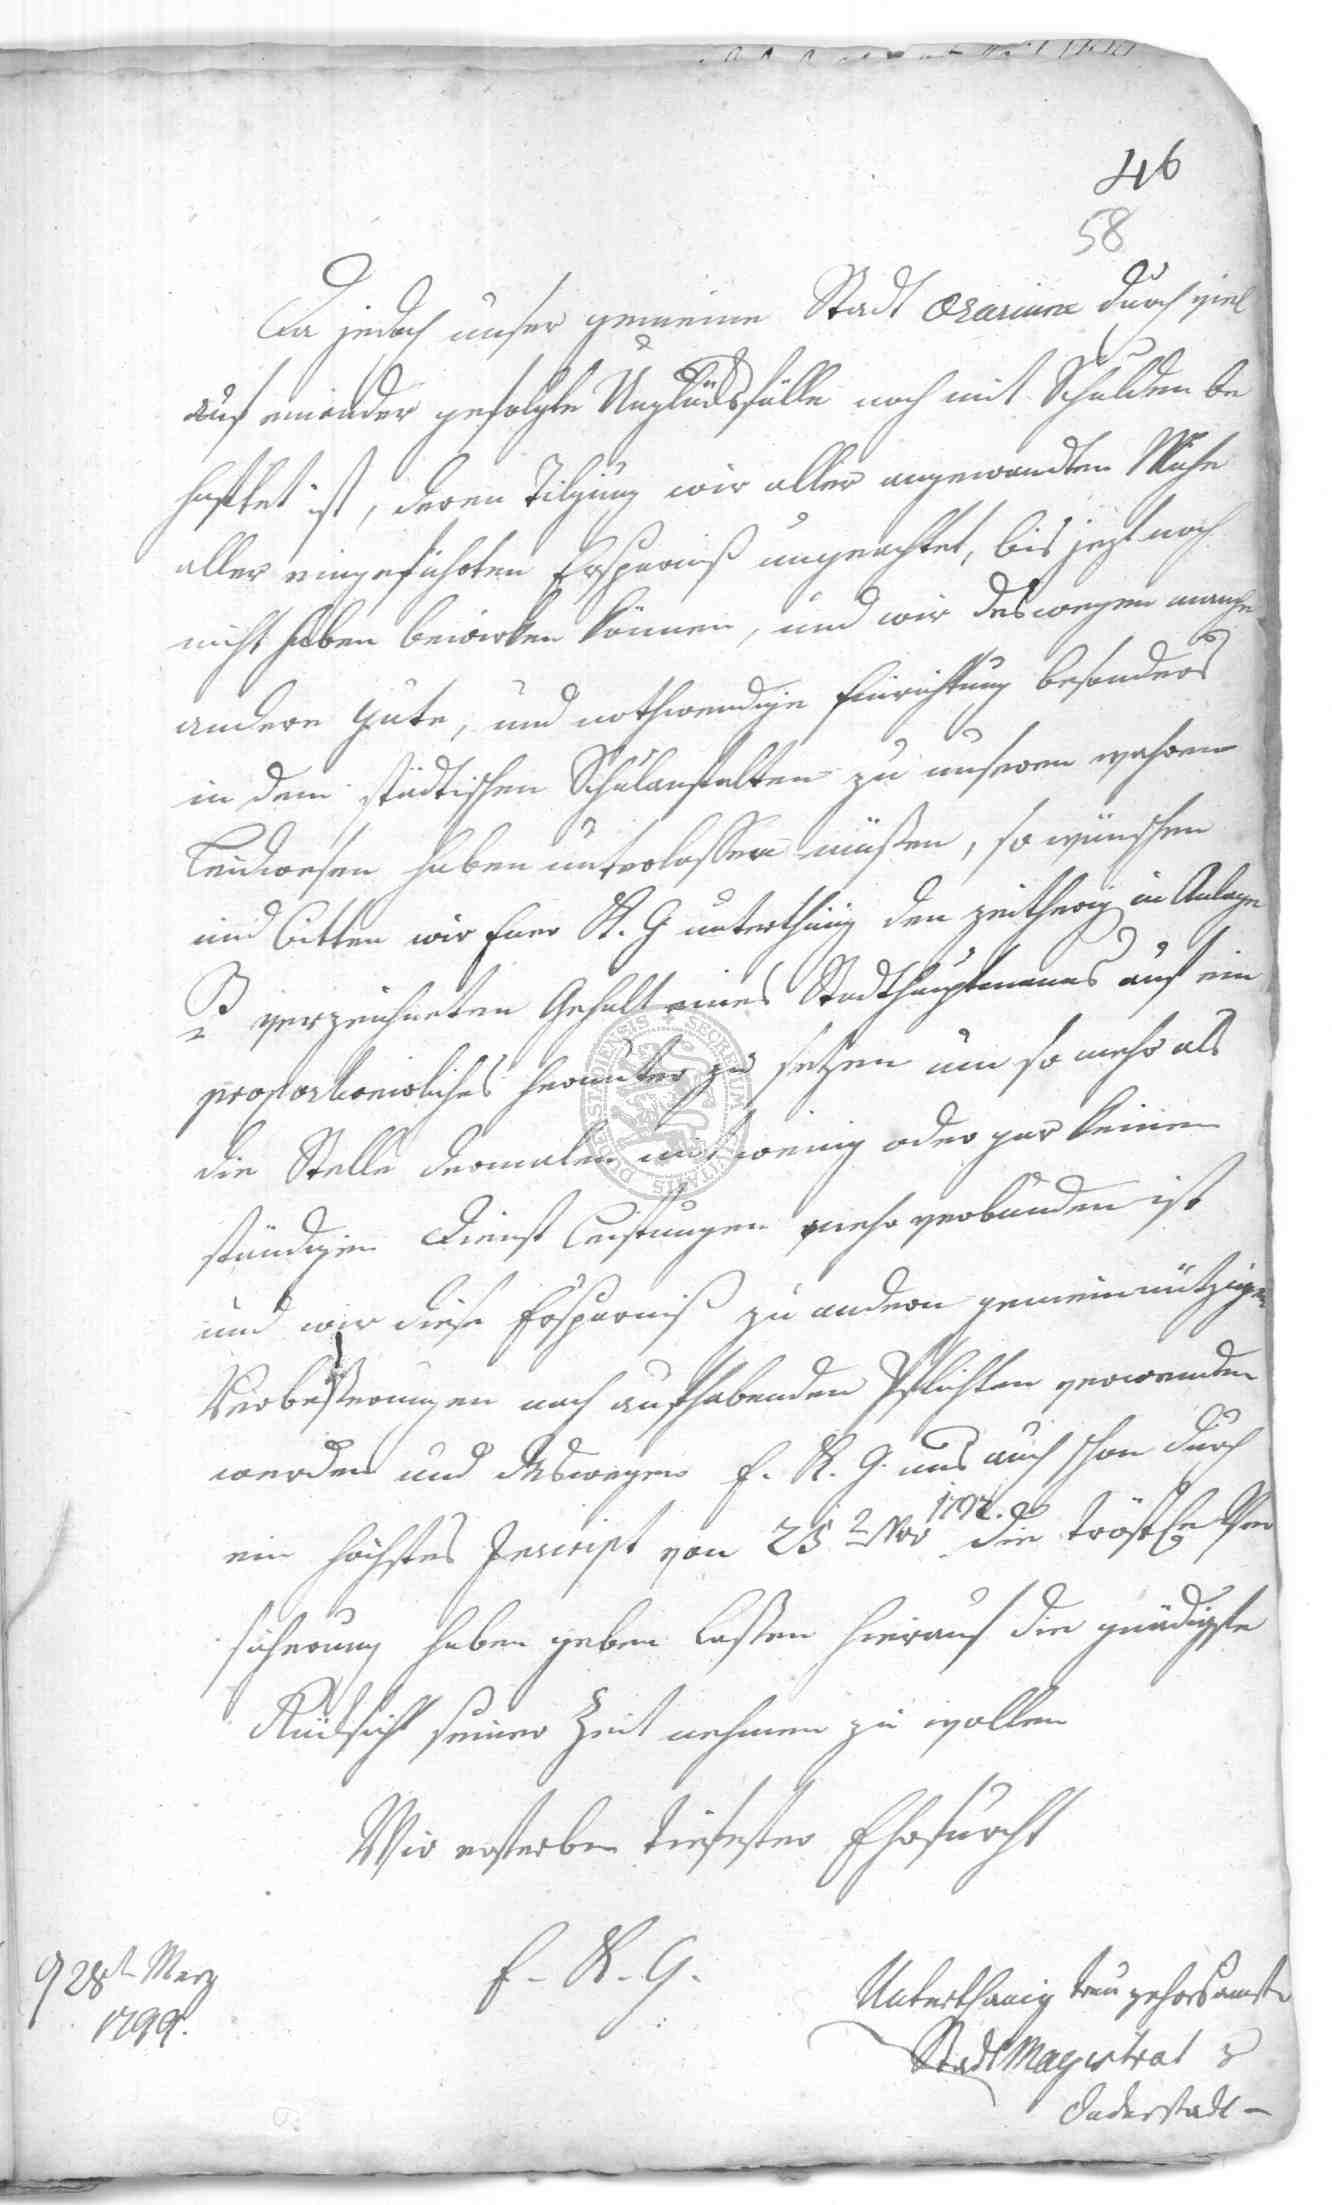 46
58
Da jedoch unser gemeine Stadt Ærarium durch viel
auf einander gefolgte Unglücksfälle noch mit Schulden be
haftet ist, deren Tilgung wir aller angewandten Mühe
aller eingeführten Ersparniß ungeachtet, bis jezt noch
nicht haben bewirken können, und wir deswegen manche
andere gute, und nothwendige Einrichtung besonders
in dem städtischen Schulanstalten zu unserem wahren
Leidwesen haben unterlassen müßen, so wünschen
und bitten wir Euer K. G unterthänig den zeitherig in Anlage
B verzeichneten Gehalt eines Stadthauptmanns auf ein
proportionirliches herunter zu setzen um so mehr als
die Stelle dermalen mit wenig oder gar keinen
ständigen Dienst Leistungen mehr verbunden ist
und wir diese Erspar̄niß zu andern gemeinnützigen
Verbeßerungen nach aufhabenden Pflichten verwenden
werden und deswegen E. K. G. uns auch schon durch
ein höchstes Rescript von 25 2 die tröstl Ver
sicherung haben geben laßen hierauf die gnädigste
Rücksicht seiner Zeit nehmen zu wollen
Wir ersterben tiefester Ehrfurcht
E. K. G.
28t Merz
1799.
Unterthanig treu gehorsamste
Stadt Magistrat z
Duderstadt
SECRETUM CIVITATIS DUDERSTADIENSIS